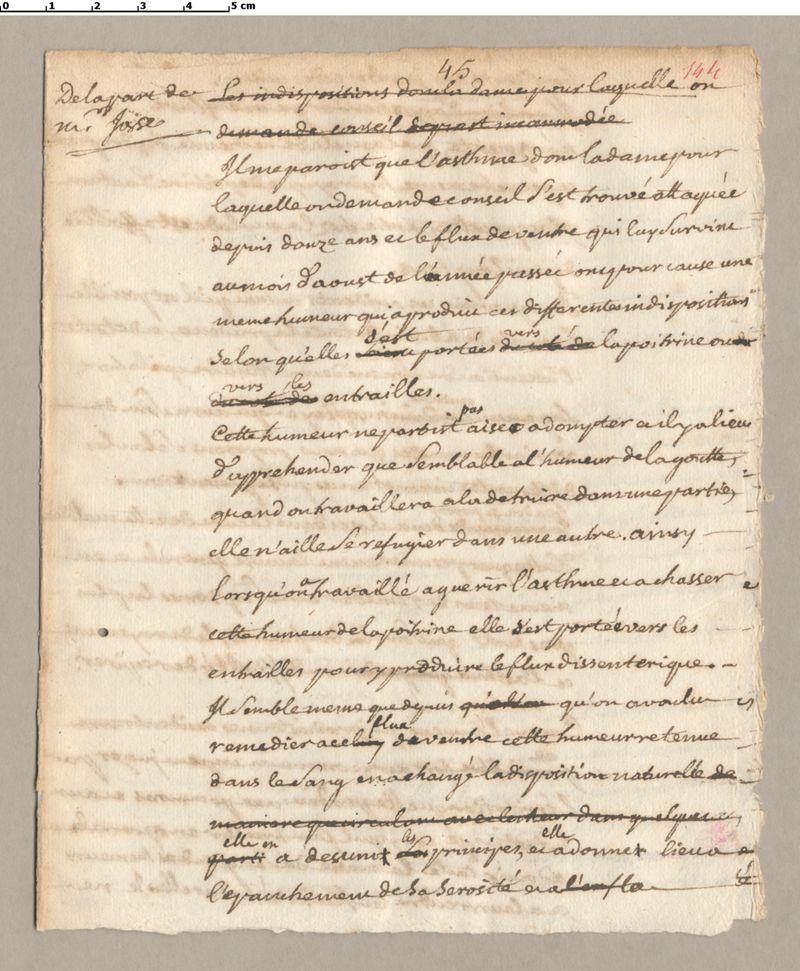 0 1 2 3 4 5 cm
45
144
De la part de
mr. Joÿse
Les indispositions dont la dame pour laquelle on
demande conseil est incommodée
Il me paroist que l'asthme dont la dame pour
laquelle on demande conseil s'est trouvé attaquée
depuis douze ans et le flux de ventre qui luy survint
au mois d'aoust de l'année passée ont pour cause une
meme humeur qui a produit ces differentes indispositions
selon qu'elles s'est portées vers la poitrine ou
vers les entrailles.
Cette humeur ne paroist pas aisee a dompter et il y a lieu
d'apprehender que semblable a l'humeur de la goutte,
quand on travaillera a la detruire dans une partie,
elle n'aille se refugier dans une autre. ainsy
lorsqu'on a travaillé a guerir l'asthme et a chasser
cette humeur de la poitrine elle s'est portée vers les
entrailles pour y produire le flux dissenterique.
Il semble meme que depuis qu'on a voulu
remedier a ce flux de ventre cette humeur retenue
dans le sang en a changé la disposition naturelle de
maniere que circulant avec lenteur dans quelques
parti elle en a desuni les principes, et elle a donné lieu a
l'epanchement de sa serosité et a l'enfla